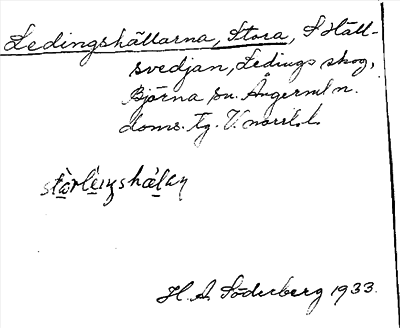 Ledingshällarna, Stora, S Häll-
svedjan, Ledings skog,
Björna sn. Ångermln.
doms. Tg. V.norrl. l.
H. A. Söderberg 1933.